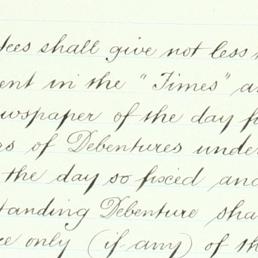 tees shall give not less t
ent in the "Times" a
ewspaper of the day f
rs of Debentures unde
the day so fixed and
standing Debenture sha
only (if any) of th